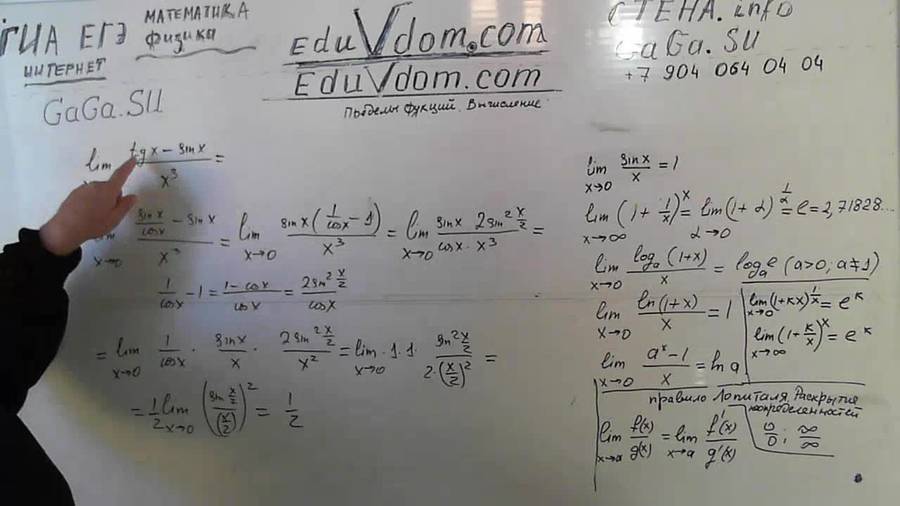 ГИА ЕГЭ
МАТЕМАТИКА
физика
ИНТЕРНЕТ
GaGa.SU
EduVdom.com
EduVdom.com
Пределы функций. Вычисление
СТЕНА.info
GaGa.SU
+7 904 064 04 04
lim x→0 (tg x − sin x)/x³ =
lim x→0 (sin x/cos x − sin x)/x³ = lim x→0 sin x(1/cos x − 1)/x³ = lim x→0 (sin x 2sin² x/2)/(cos x · x³) =
1/cos x − 1 = (1 − cos x)/cos x = (2sin² x/2)/cos x
= lim x→0 1/cos x · sin x/x · (2sin² x/2)/x² = lim x→0 · 1 · 1 · (sin² x/2)/(2·(x/2)²) =
= 1/2 lim x→0 ((sin x/2)/(x/2))² = 1/2
lim x→0 sin x/x = 1
lim x→∞ (1 + 1/x)^x = lim α→0 (1 + α)^(1/α) = e = 2,71828...
lim x→0 log_a(1+x)/x = log_a e (a>0; a≠1)
lim x→0 ln(1+x)/x = 1
lim x→0 (1+kx)^(1/x) = e^k
lim x→∞ (1 + k/x)^x = e^k
lim x→0 (a^x − 1)/x = ln a
правило Лопиталя. Раскрытие
неопределенностей
lim x→a f(x)/g(x) = lim x→a f'(x)/g'(x)
0/0 ; ∞/∞